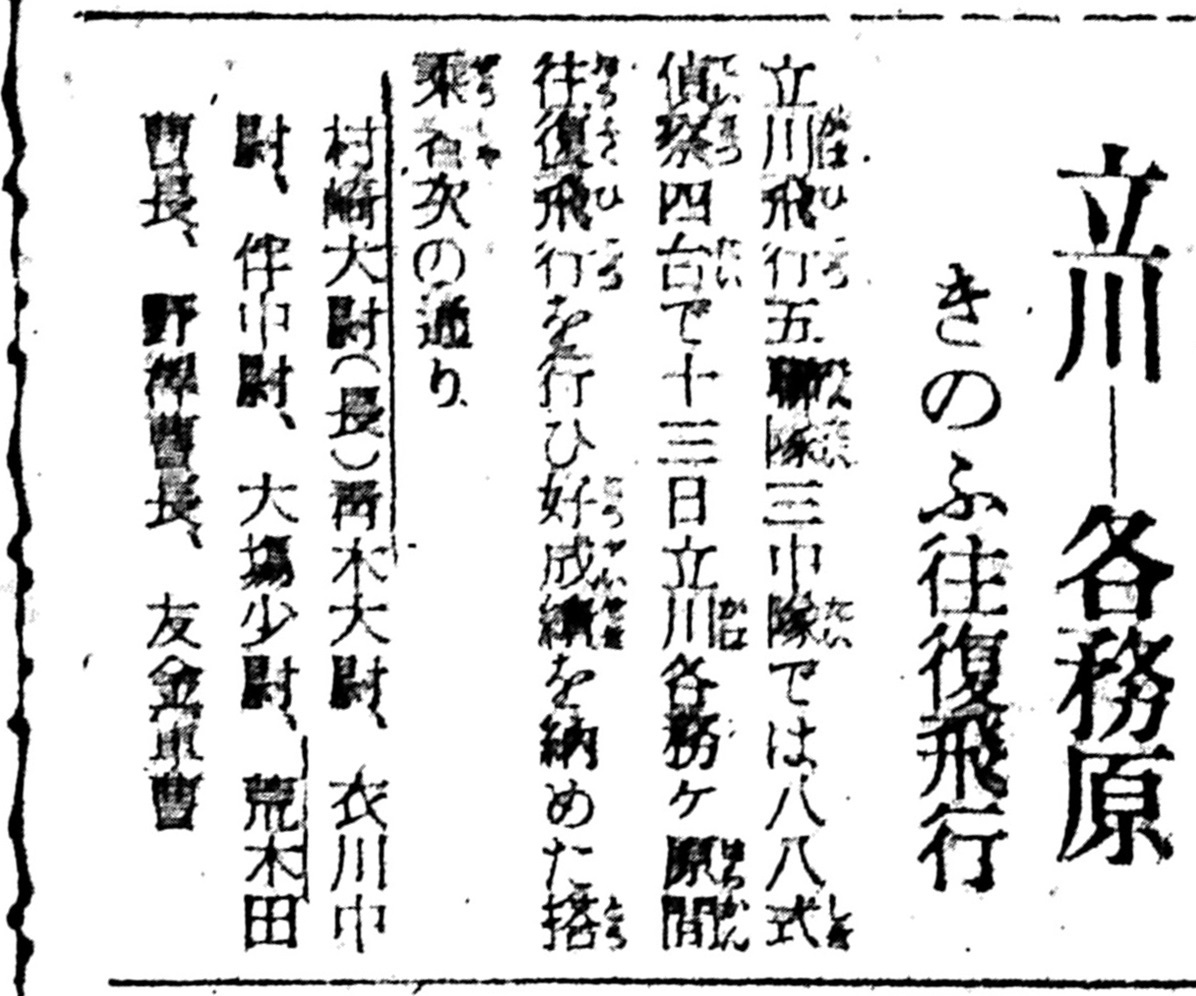 立川―各務原
きのふ往復飛行
立川飛行五聯隊三中隊では八八式
偵察四台で十三日立川各務ケ原間
往復飛行を行ひ好成績を納めた搭
乘者次の通り
村崎大尉(長)青木大尉、衣川中
尉、伴中尉、大場少尉、荒木田
曹長、野樺曹長、友金軍曹